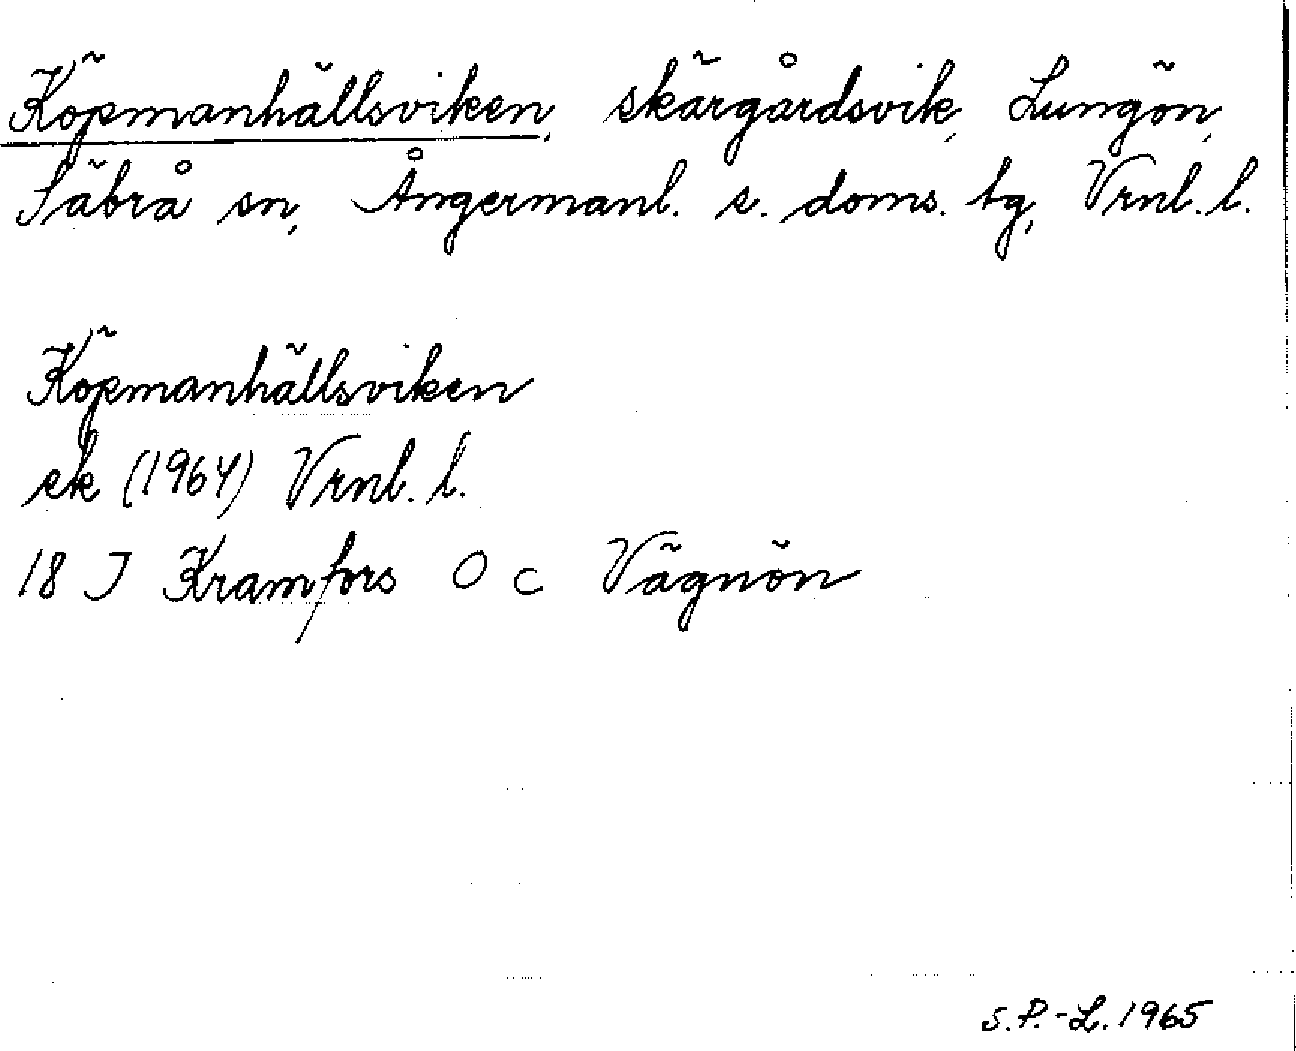 Köpmanhällsviken, skärgårdsvik, Lungön,
Säbrå sn, Ångermanl. s. doms. tg, Vrnl. l.
Köpmanhällsviken
ek (1964) Vrnl. l.
18 J Kramfors O c Vägnön
S.P.-L. 1965